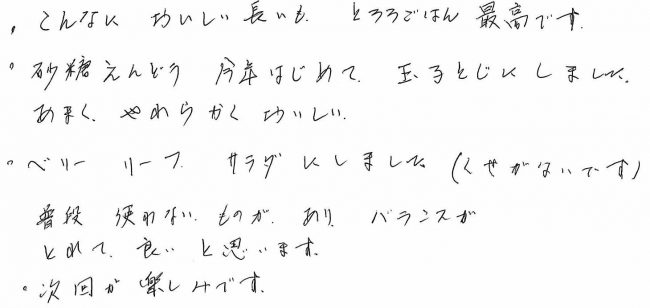 ・こんなに おいしい 長いも、とろろごはん 最高です。
・砂糖えんどう 今年はじめて、玉子とじにしました。
あまく、やわらかく おいしい。
・ベリーリーフ サラダにしました (くせがないです)
普段 使わない ものが、あり、バランスが
とれて、良い と思います。
・次回が 楽しみです。